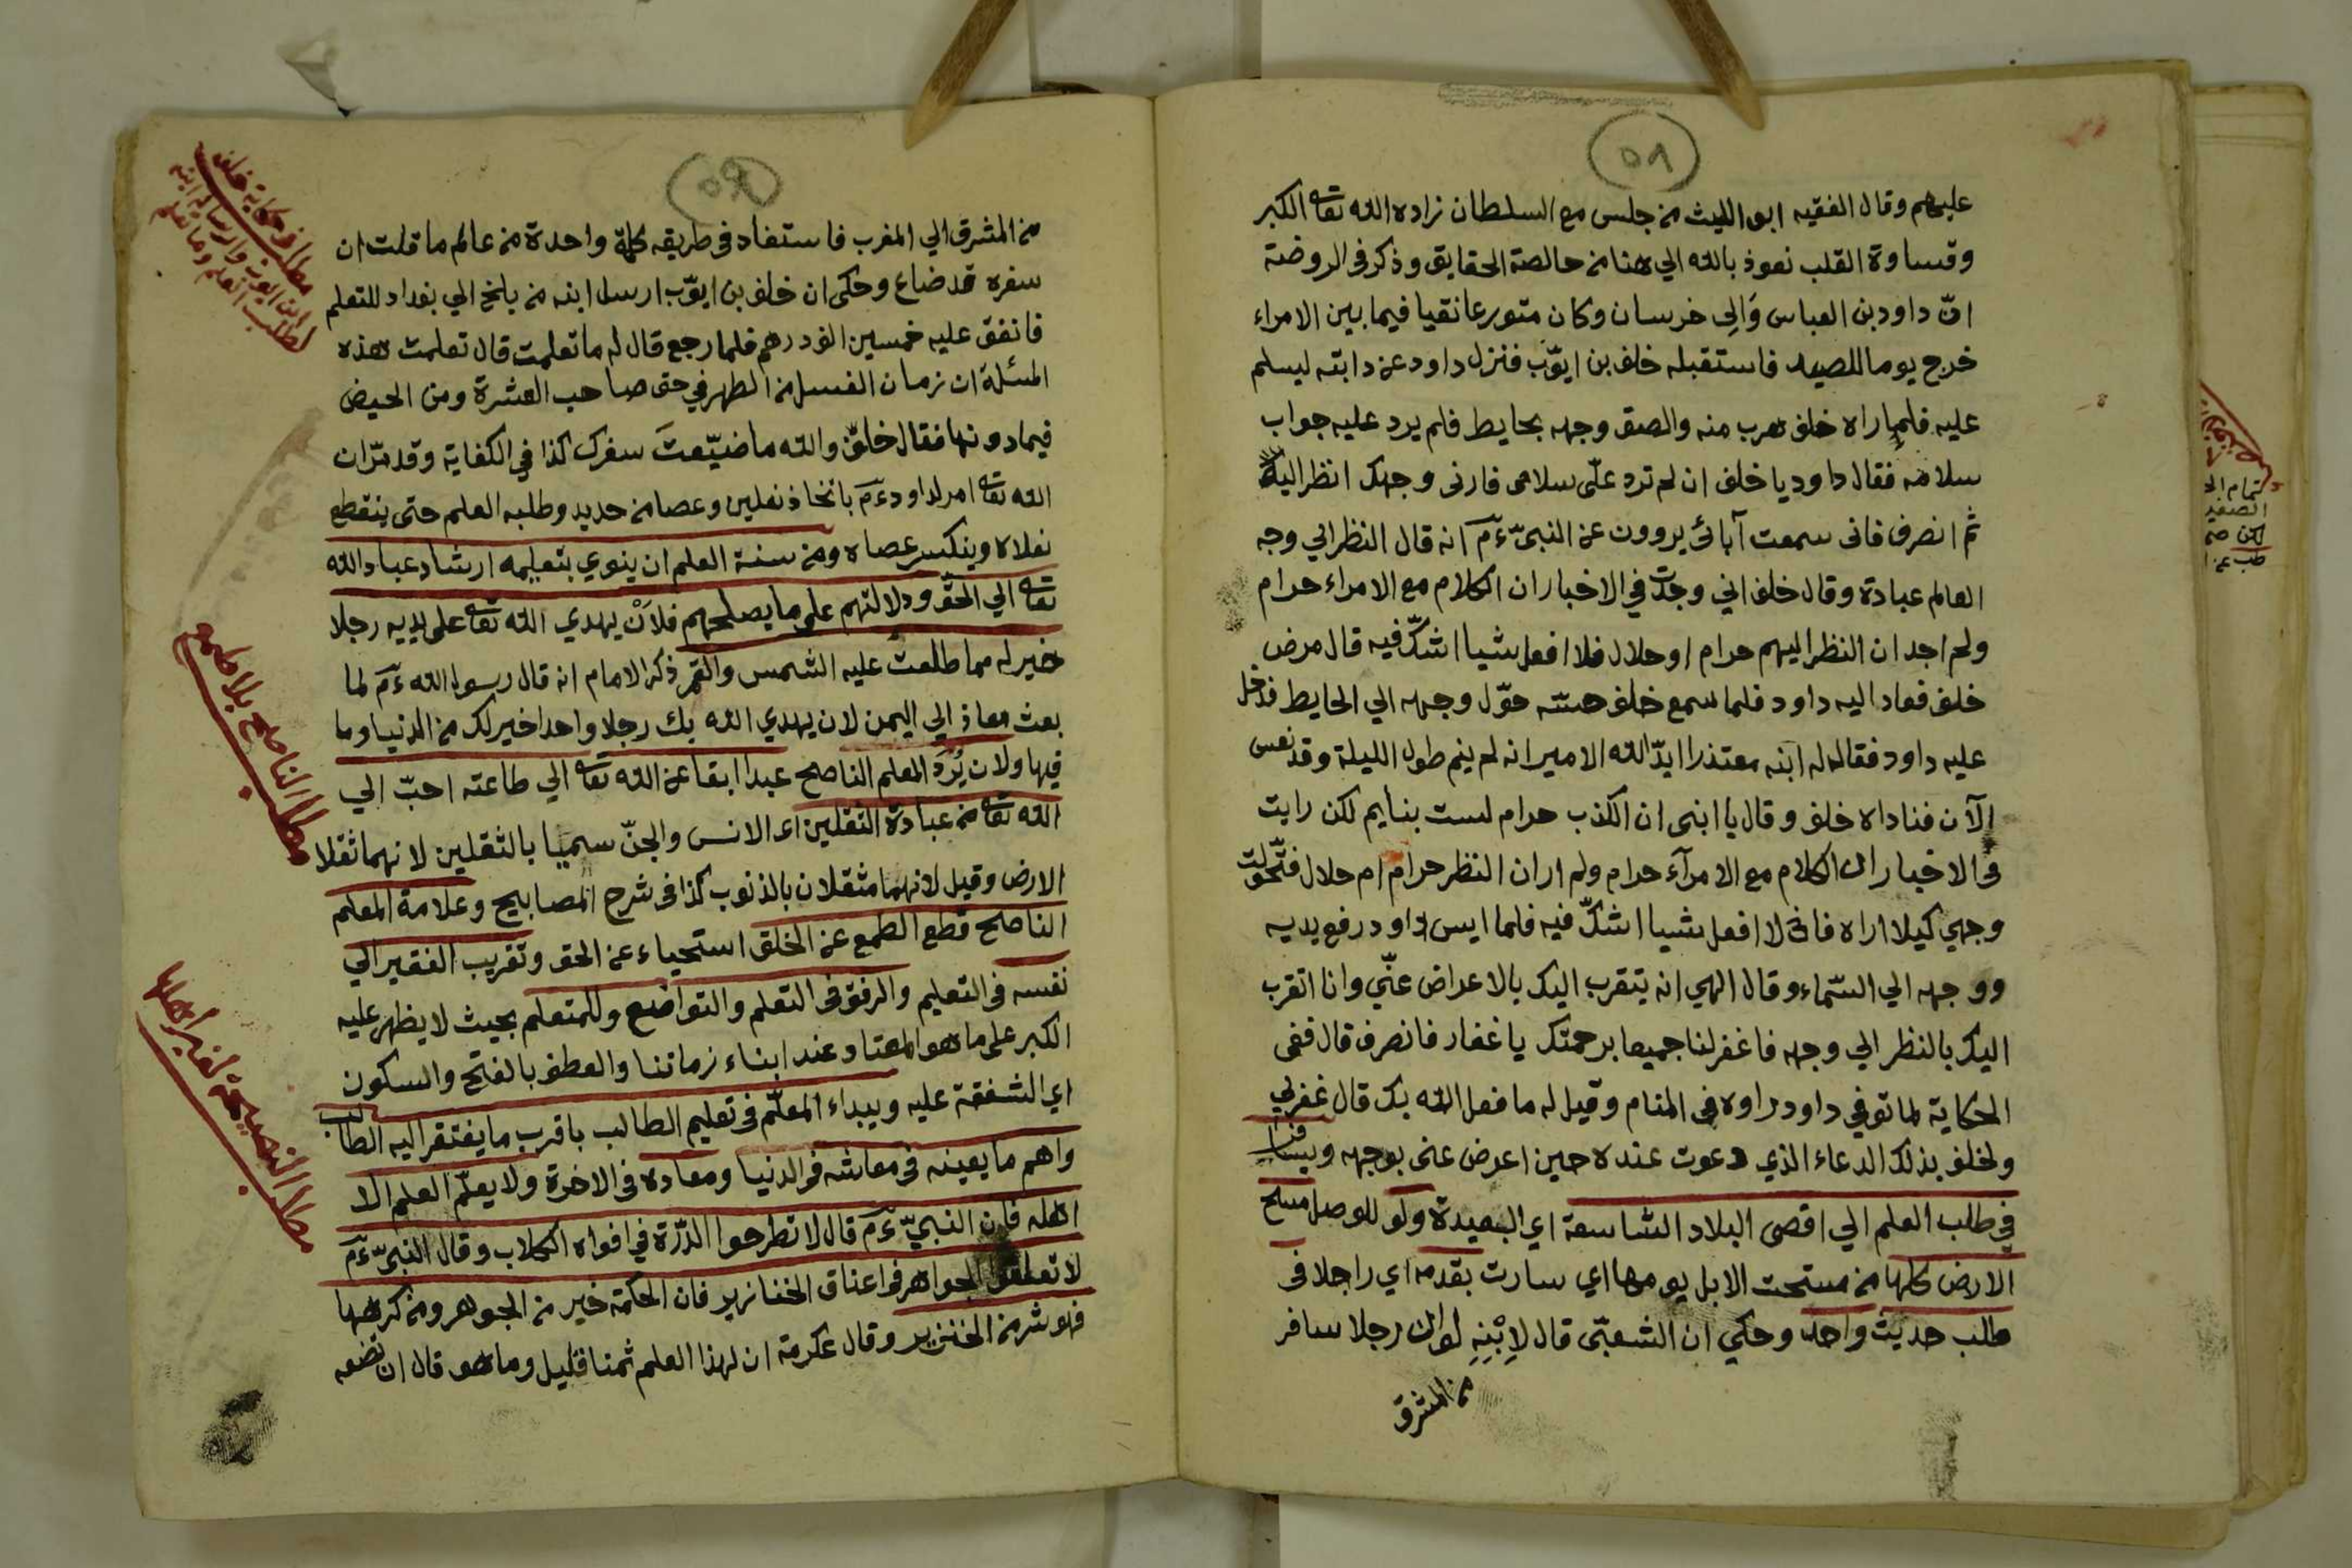 ٥٨
عليهم وقال الفقيه ابو الليث من جلس مع السلطان زاده الله تعه الكبر
وقساوة القلب نعوذ بالله الي هنا من خالصة الحقايق وذكر في الروضة
انّ داود بن العباس وَالِى خرسان وكان متورعا نقيا فيما بين الامراء
خرج يوما للصيد فاستقبله خلف بن ايوّب فنزل داود عن دابته ليسلم
عليه فلما راه خلف هرب منه والصق وجهه بحايط فلم يرد عليه جواب
سلامه فقال داود يا خلف ان لم ترد علىّ سلامى فارنى وجهك انظر اليه
ثم انصرف فانى سمعت آبائى يروون عن النبىّ ءمَ انه قال النظر الي وجه
العالم عبادة وقال خلف اني وجدت في الاخبار ان الكلام مع الامراء حرام
ولم اجد ان النظر اليهم حرام او حلال فلا افعل شيا اشكّ فيه قال مرض
خلف فعاد اليه داود فلما سمع خلف حسّه حوّل وجهه الي الحايط فدخل
عليه داود فقال له ابنه معتذرا ايدّ الله الامير انه لم ينم طول الليلة وقد نعس
الآن فناداه خلف وقال يا ابنى ان الكذب حرام لست بنايم لكن رايت
فى الاخبار ان الكلام مع الامرآء حرام ولم ار ان النظر حرام ام حلال فتحّولت
وجهي كيلا اراه فانى لا افعل شيا اشكّ فيه فلما ايس داود رفع يديه
ووجهه الي السّماء وقال الهي انه يتقرب اليك بالاعراض عنّي وانا اتقرب
اليك بالنظر الي وجهه فاغفر لنا جميعا برحمتك يا غفار فانصرف قال ففى
الحكاية لما توفي داود راوه في المنام وقيل له ما فعل الله بك قال غفر لي
ولخلف بذلك الدعاء الذي دعوت عنده حين اعرض عنى بوجهه ويسافر
في طلب العلم الي اقصى البلاد الشاسعة اي البعيدة ولو للوصل مسح
الارض كلها من مسحت الابل يومها اي سارت بقدمه اي راجلا فى
طلب حديث واحد وحكي ان الشعبّى قال لِابْنِهِ لو ان رجلا سافر
من المشرق
٥٩
من المشرق الي المغرب فاستفاد في طريقه كلمة واحدة من عالم ما قلت ان
سفره قد ضاع وحكى ان خلف بن ايوّب ارسل ابنه من بلخ الي بغداد للتعلم
فانفق عليه خمسين الف درهم فلما رجع قال له ما تعلمت قال تعلمت هذه
المسئلة ان زمان الغسل من الطهر في حق صاحب العشرة ومن الحيض
فيما دونها فقال خلف والله ما ضيّعتَ سفرك كذا في الكفاية وقد مرّ ان
الله تعه امر لداود ءمَ باتخاذ نعلين وعصا من حديد وطلبه العلم حتى ينقطع
نعلاه وينكسر عصاه ومن سنة العلم ان ينوي بتعليمه ارشاد عباد الله
تعه الي الحقّ ودلالتهم على ما يصلحهم فلَاَنْ يهدي الله تعه على يديه رجلا
خير له مما طلعت عليه الشمس والقمر ذكر الامام انه قال رسول الله ءمَ لما
بعث معاذ الي اليمن لان يهدي الله بك رجلا واحدا خير لك من الدنيا وما
فيها ولان يُرَدَّ المعلم الناصح عبدا ابقا عن الله تعه الي طاعته احبّ الي
الله تعه من عبادة الثقلين اى الانس والجنّ سميا بالثقلين لانهما ثقلا
الارض وقيل لانهما مثقلان بالذنوب كذا في شرح المصابيح وعلامة المعلم
الناصح قطع الطمع عن الخلق استحياء عن الحق وتقريب الفقير الي
نفسه في التعليم والرفق فى التعلم والتواضع وللمتعلم بحيث لا يظهر عليه
الكبر على ما هو المعتاد عند ابناء زماننا والعطف بالفتح والسكون
اي الشفقة عليه ويبداء المعلّم في تعليم الطالب باقرب ما يفتقر اليه الطالب
واهم ما يعينه في معاشه فى الدنيا ومعاده فى الاخرة ولا يعلّم العلم الا
اهله فان النبيّ ءمَ قال لا تطرحوا الدّرّة في افواه الكلاب وقال النبىّ ءمَ
لا تعلقوا الجواهر في اعناق الخنازير فان الحكمة خير من الجوهر ومن كرهها
فهو شر من الخنزير وقال عكرمة ان لهذا العلم ثمنا قليل وما هو قال ان تضعه
مطلب حكاية خلف
ابن ايوب وارساله ابنه
لطلب العلم وما تعلم
مطلب الناصح بلا طمع
مطلب النصيحة لغير اهلها